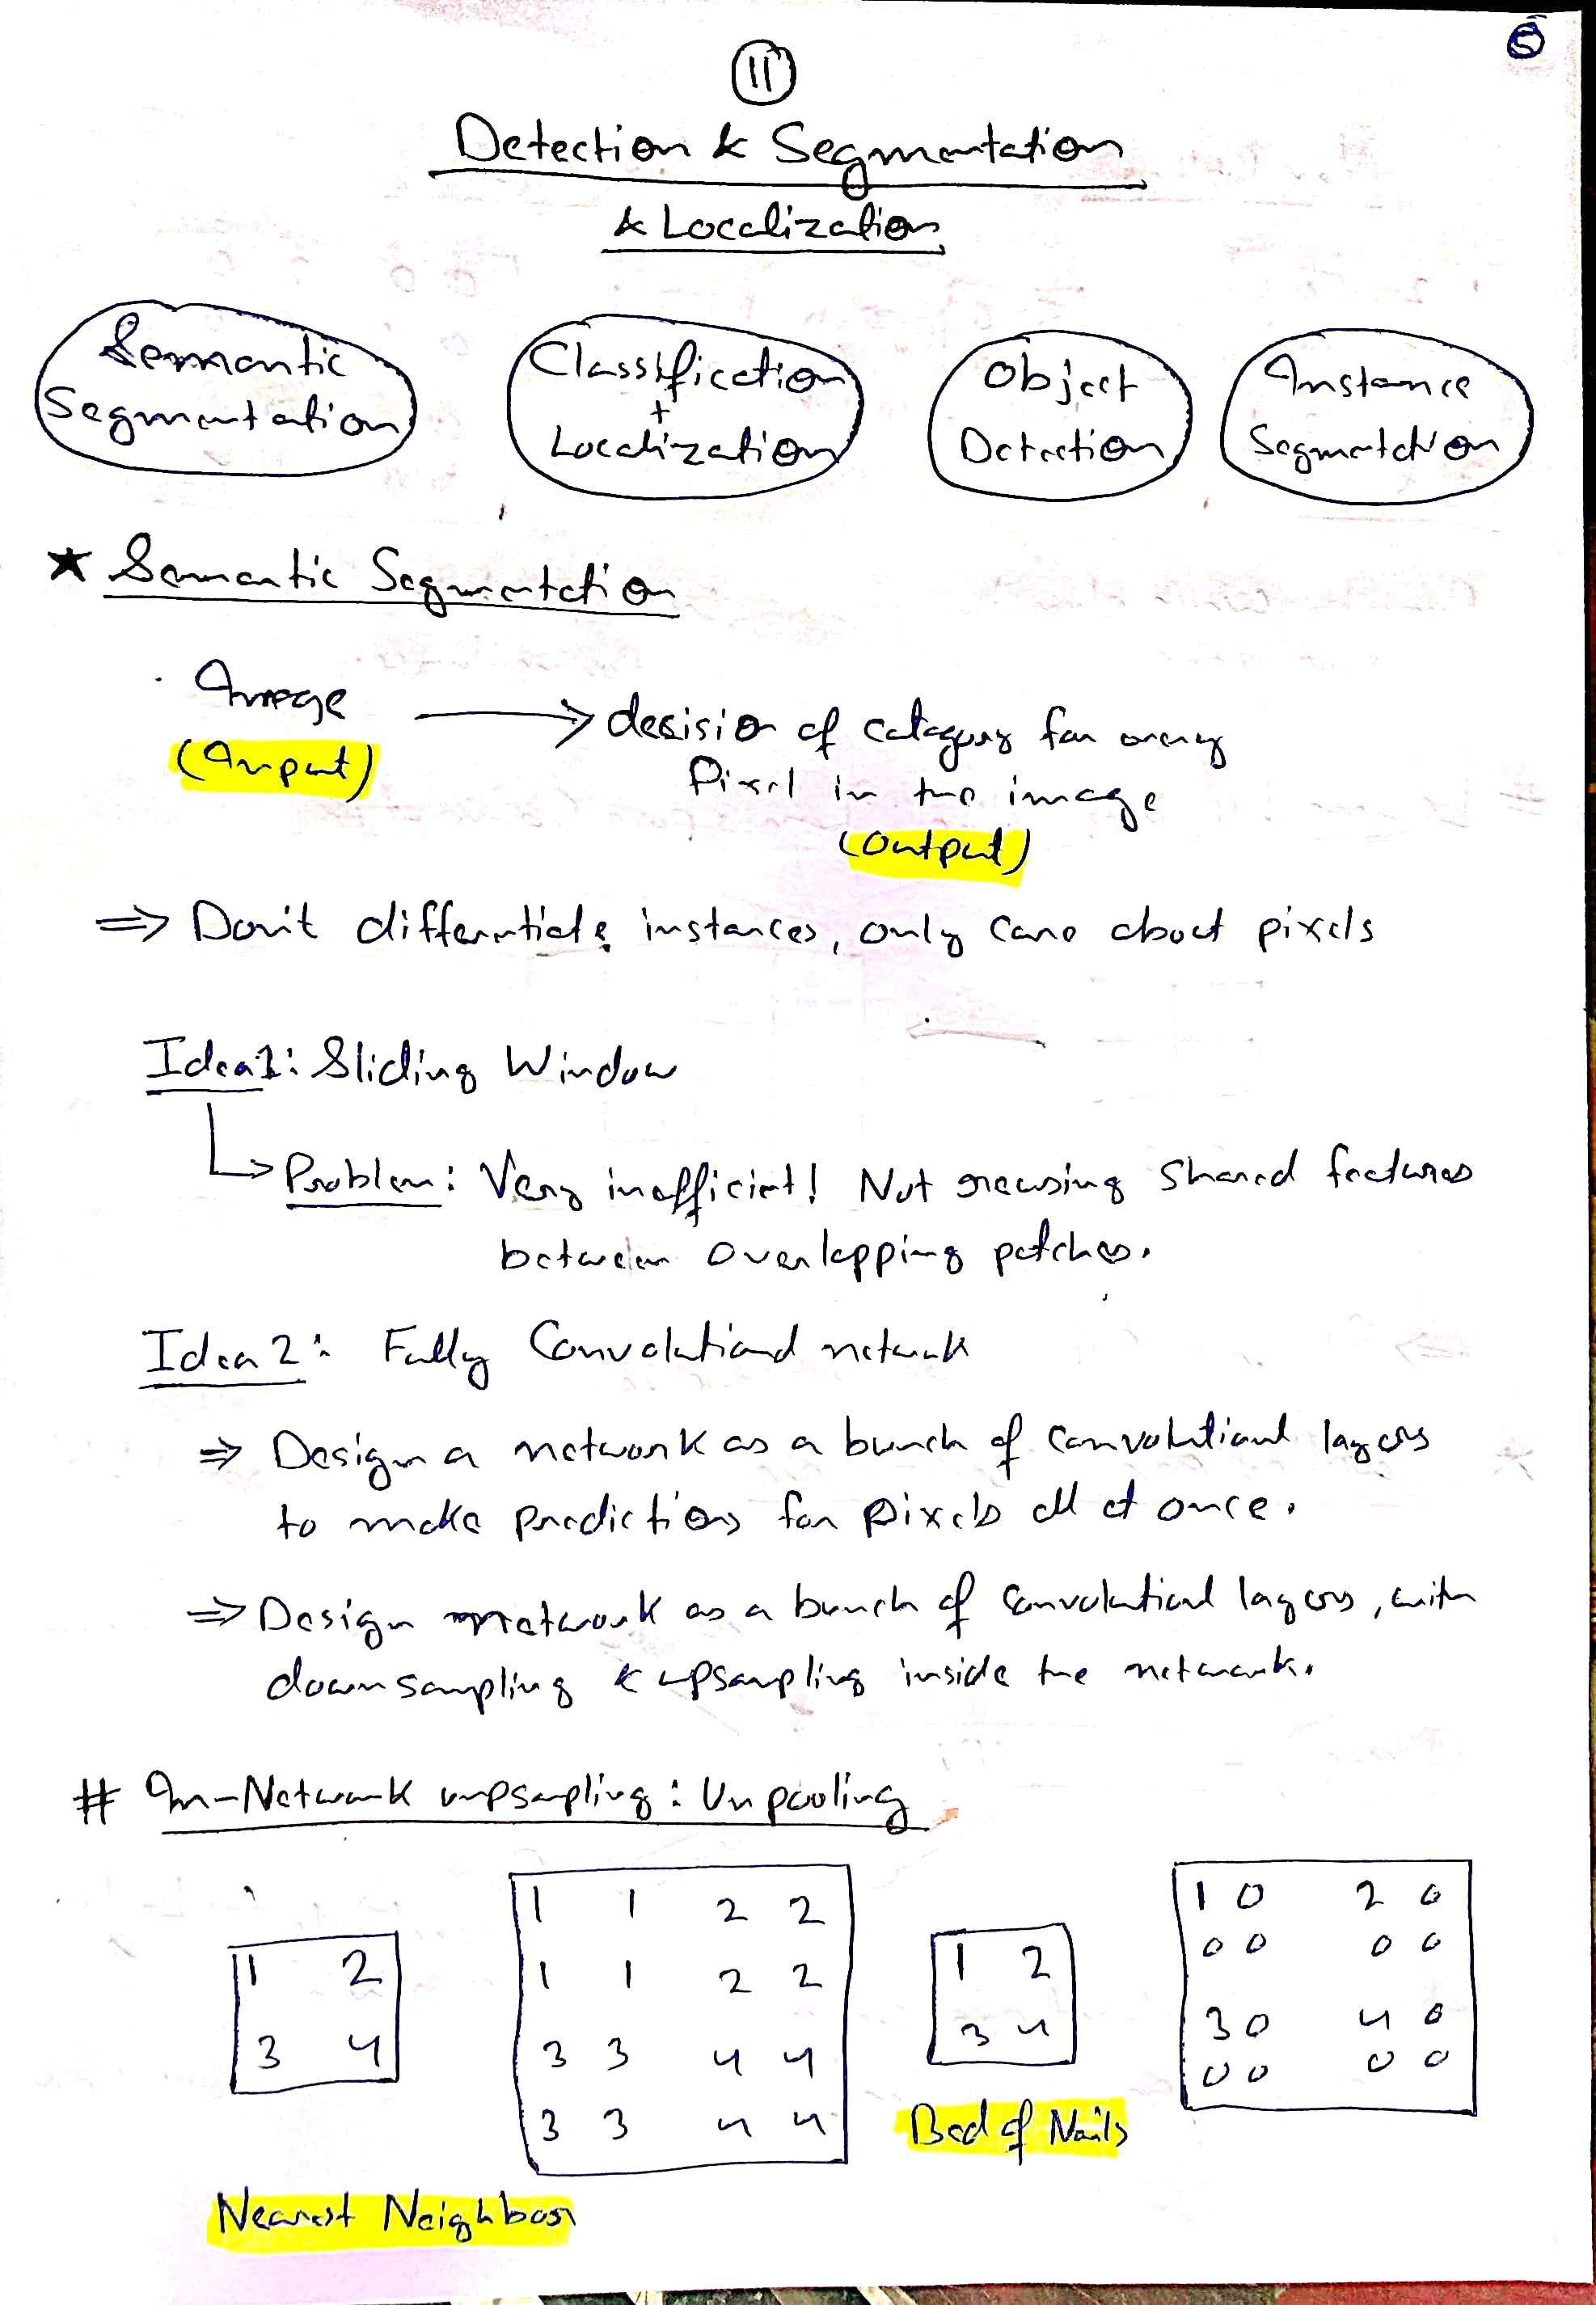 5
11
Detection & Segmentation
& Localization
Semantic Segmentation
Classification + Localization
Object Detection
Instance Segmentation
★ Semantic Segmentation
Image → desision of category for every
(Input)
Pixel in the image
(Output)
⇒ Don't differentiate instances, only care about pixels
Idea 1: Sliding Window
↳ Problem: Very inefficient! Not reusing shared features
between overlapping patches.
Idea 2: Fully Convolutional network
⇒ Design a network as a bunch of convolutional layers
to make predictions for pixels all at once.
⇒ Design network as a bunch of convolutional layers, with
downsampling & upsampling inside the network.
# In-Network upsampling: Unpooling
1 2
3 4
1 1 2 2
1 1 2 2
3 3 4 4
3 3 4 4
Nearest Neighbor
1 2
3 4
Bed of Nails
1 0 2 0
0 0 0 0
3 0 4 0
0 0 0 0